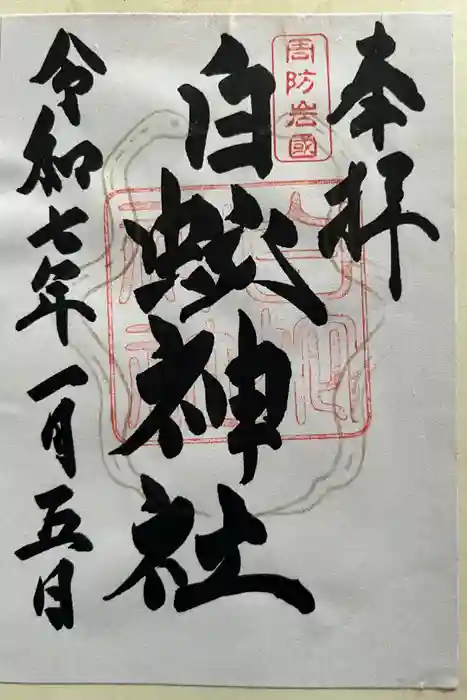 奉拝
周防岩國
白蛇神社
令和七年一月五日